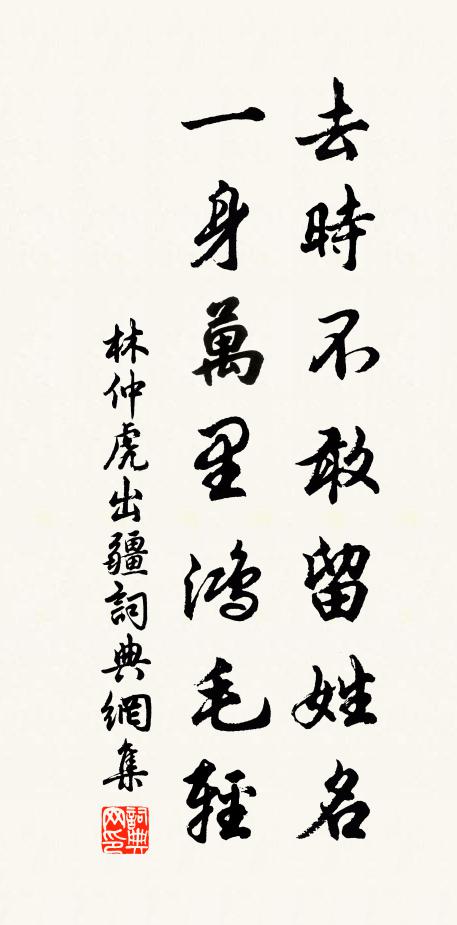 去時不敢留姓名
一身萬里鴻毛輕
林仲虎出疆詞典網集
詞典
网印